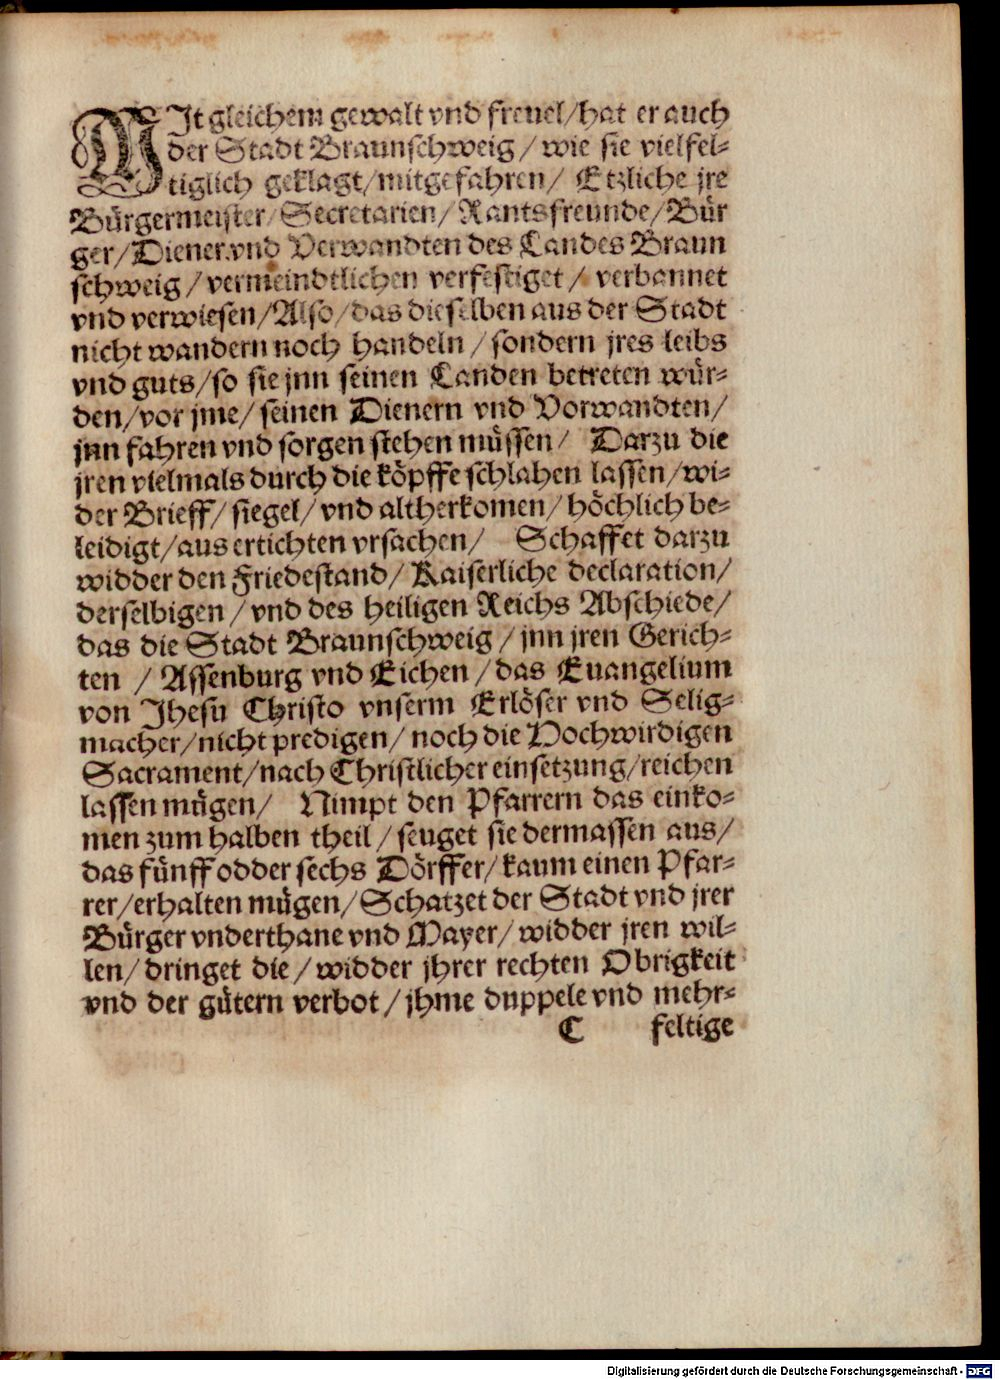 MIt gleichem gewalt vnd freuel/hat er auch
der Stadt Braunschweig/wie sie vielfel-
tiglich geklagt/mitgefahren/ Etzliche jre
Bürgermeister/Secretarien/Rantsfreunde/Bür
ger/Diener vnd Verwandten des Landes Braun
schweig/vermeindtlichen verfestiget/verbannet
vnd verwiesen/Also/das dieselben aus der Stadt
nicht wandern noch handeln/sondern jres leibs
vnd guts/so sie jnn seinen Landen betreten wür-
den/vor jme/seinen Dienern vnd Vorwandten/
jnn fahren vnd sorgen stehen müssen/ Darzu die
jren vielmals durch die köpffe schlahen lassen/wi-
der Brieff/siegel/vnd altherkomen/höchlich be-
leidigt/aus ertichten vrsachen/ Schaffet darzu
widder den Friedestand/Kaiserliche declaration/
derselbigen/vnd des heiligen Reichs Abschiede/
das die Stadt Braunschweig/jnn jren Gerich-
ten/Assenburg vnd Eichen/das Euangelium
von Jhesu Christo vnserm Erlöser vnd Selig-
macher/nicht predigen/noch die Hochwirdigen
Sacrament/nach Christlicher einsetzung/reichen
lassen mügen/ Nimpt den Pfarrern das einko-
men zum halben theil/seuget sie dermassen aus/
das fünff odder sechs Dörffer/kaum einen Pfar-
rer/erhalten mügen/Schatzet der Stadt vnd jrer
Bürger vnderthane vnd Mayer/widder jren wil-
len/dringet die/widder jhrer rechten Obrigkeit
vnd der gütern verbot/jhme duppele vnd mehr-
C feltige
Digitalisierung gefördert durch die Deutsche Forschungsgemeinschaft - DFG